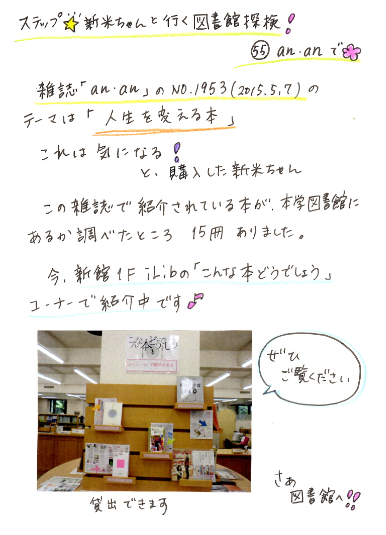 ステップ☆新米ちゃんと行く図書館探検!
55 an・anで
雑誌「an・an」のNO.1953(2015.5,7)の
テーマは「人生を変える本」
これは気になる!
と、購入した新米ちゃん
この雑誌で紹介されている本が、本学図書館に
あるか調べたところ 15冊 ありました。
今、新館1F iLibの「こんな本どうでしょう」
コーナーで紹介中です♪
ぜひ
ご覧ください
貸出できます
さあ
図書館へ!!